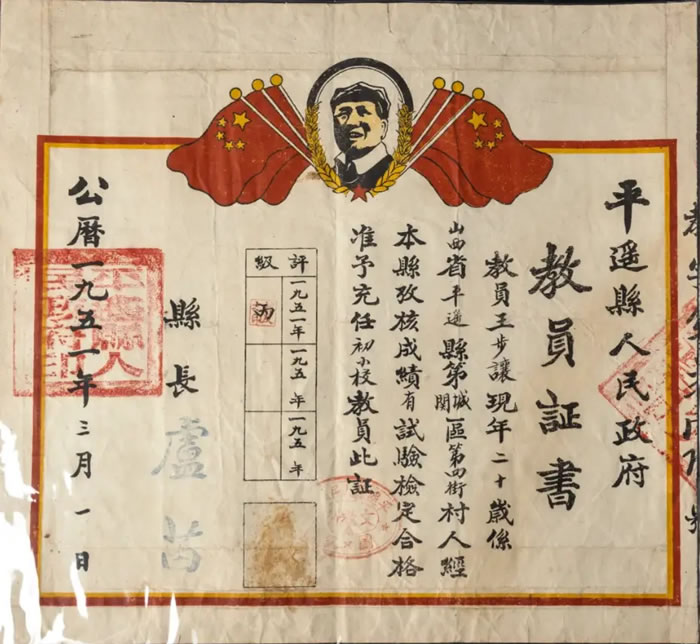 平遥縣人民政府
教員証書
教員王步讓現年二十歲係
山西省平遥縣第城関區第四街村人經
本縣攷核成績有試驗檢定合格
准予充任初小校教員此証
評級
一九五一年
丙
一九五 年
一九五 年
縣長
盧
公曆一九五一年三月一日